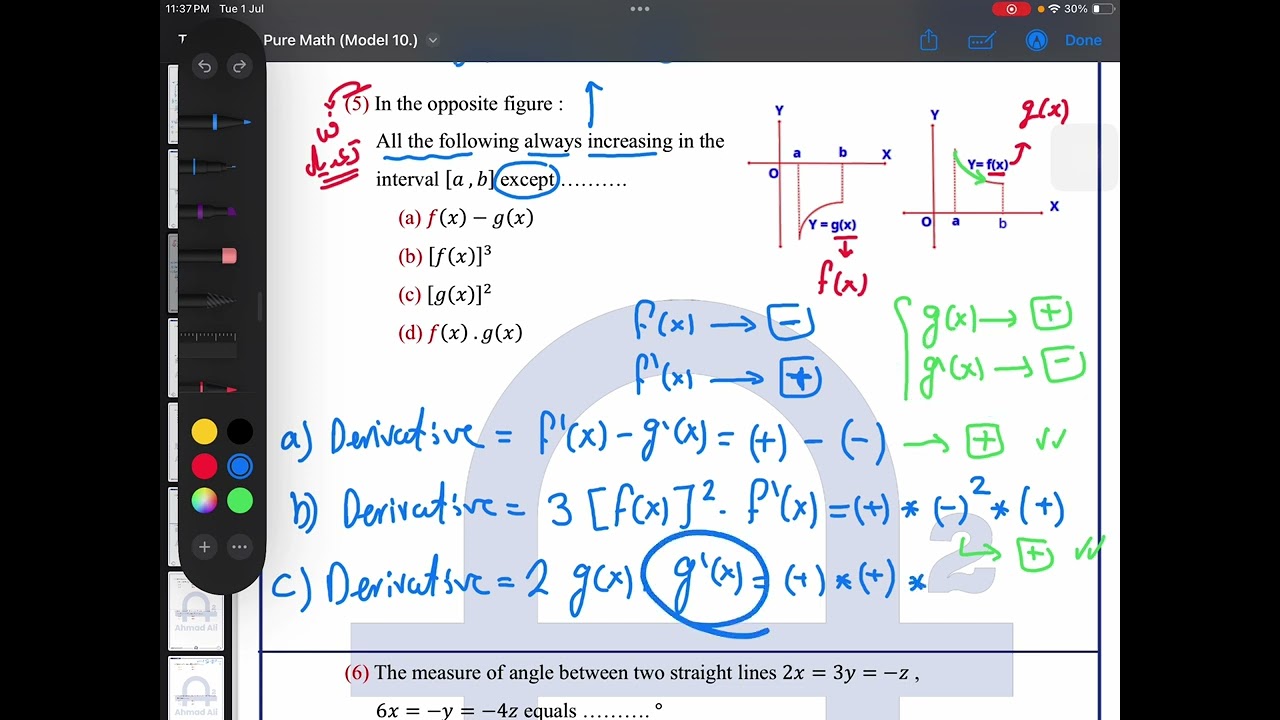 11:37 PM Tue 1 Jul
30%
Pure Math (Model 10.)
Done
(5) In the opposite figure :
All the following always increasing in the
interval [a , b] except ..........
(a) f(x) − g(x)
(b) [f(x)]³
(c) [g(x)]²
(d) f(x) . g(x)
Y
a b X
O
Y = g(x)
f(x)
Y
g(x)
Y= f(x)
X
O a b
f(x) → -
f'(x) → +
g(x) → +
g'(x) → -
a) Derivative = f'(x) - g'(x) = (+) - (-) → +
b) Derivative = 3 [f(x)]². f'(x) = (+) * (-)² * (+)
→ +
c) Derivative = 2 g(x) g'(x) = (+) * (+) *
2
(6) The measure of angle between two straight lines 2x = 3y = −z ,
6x = −y = −4z equals .......... °
Ahmad Ali
Ahmad Ali